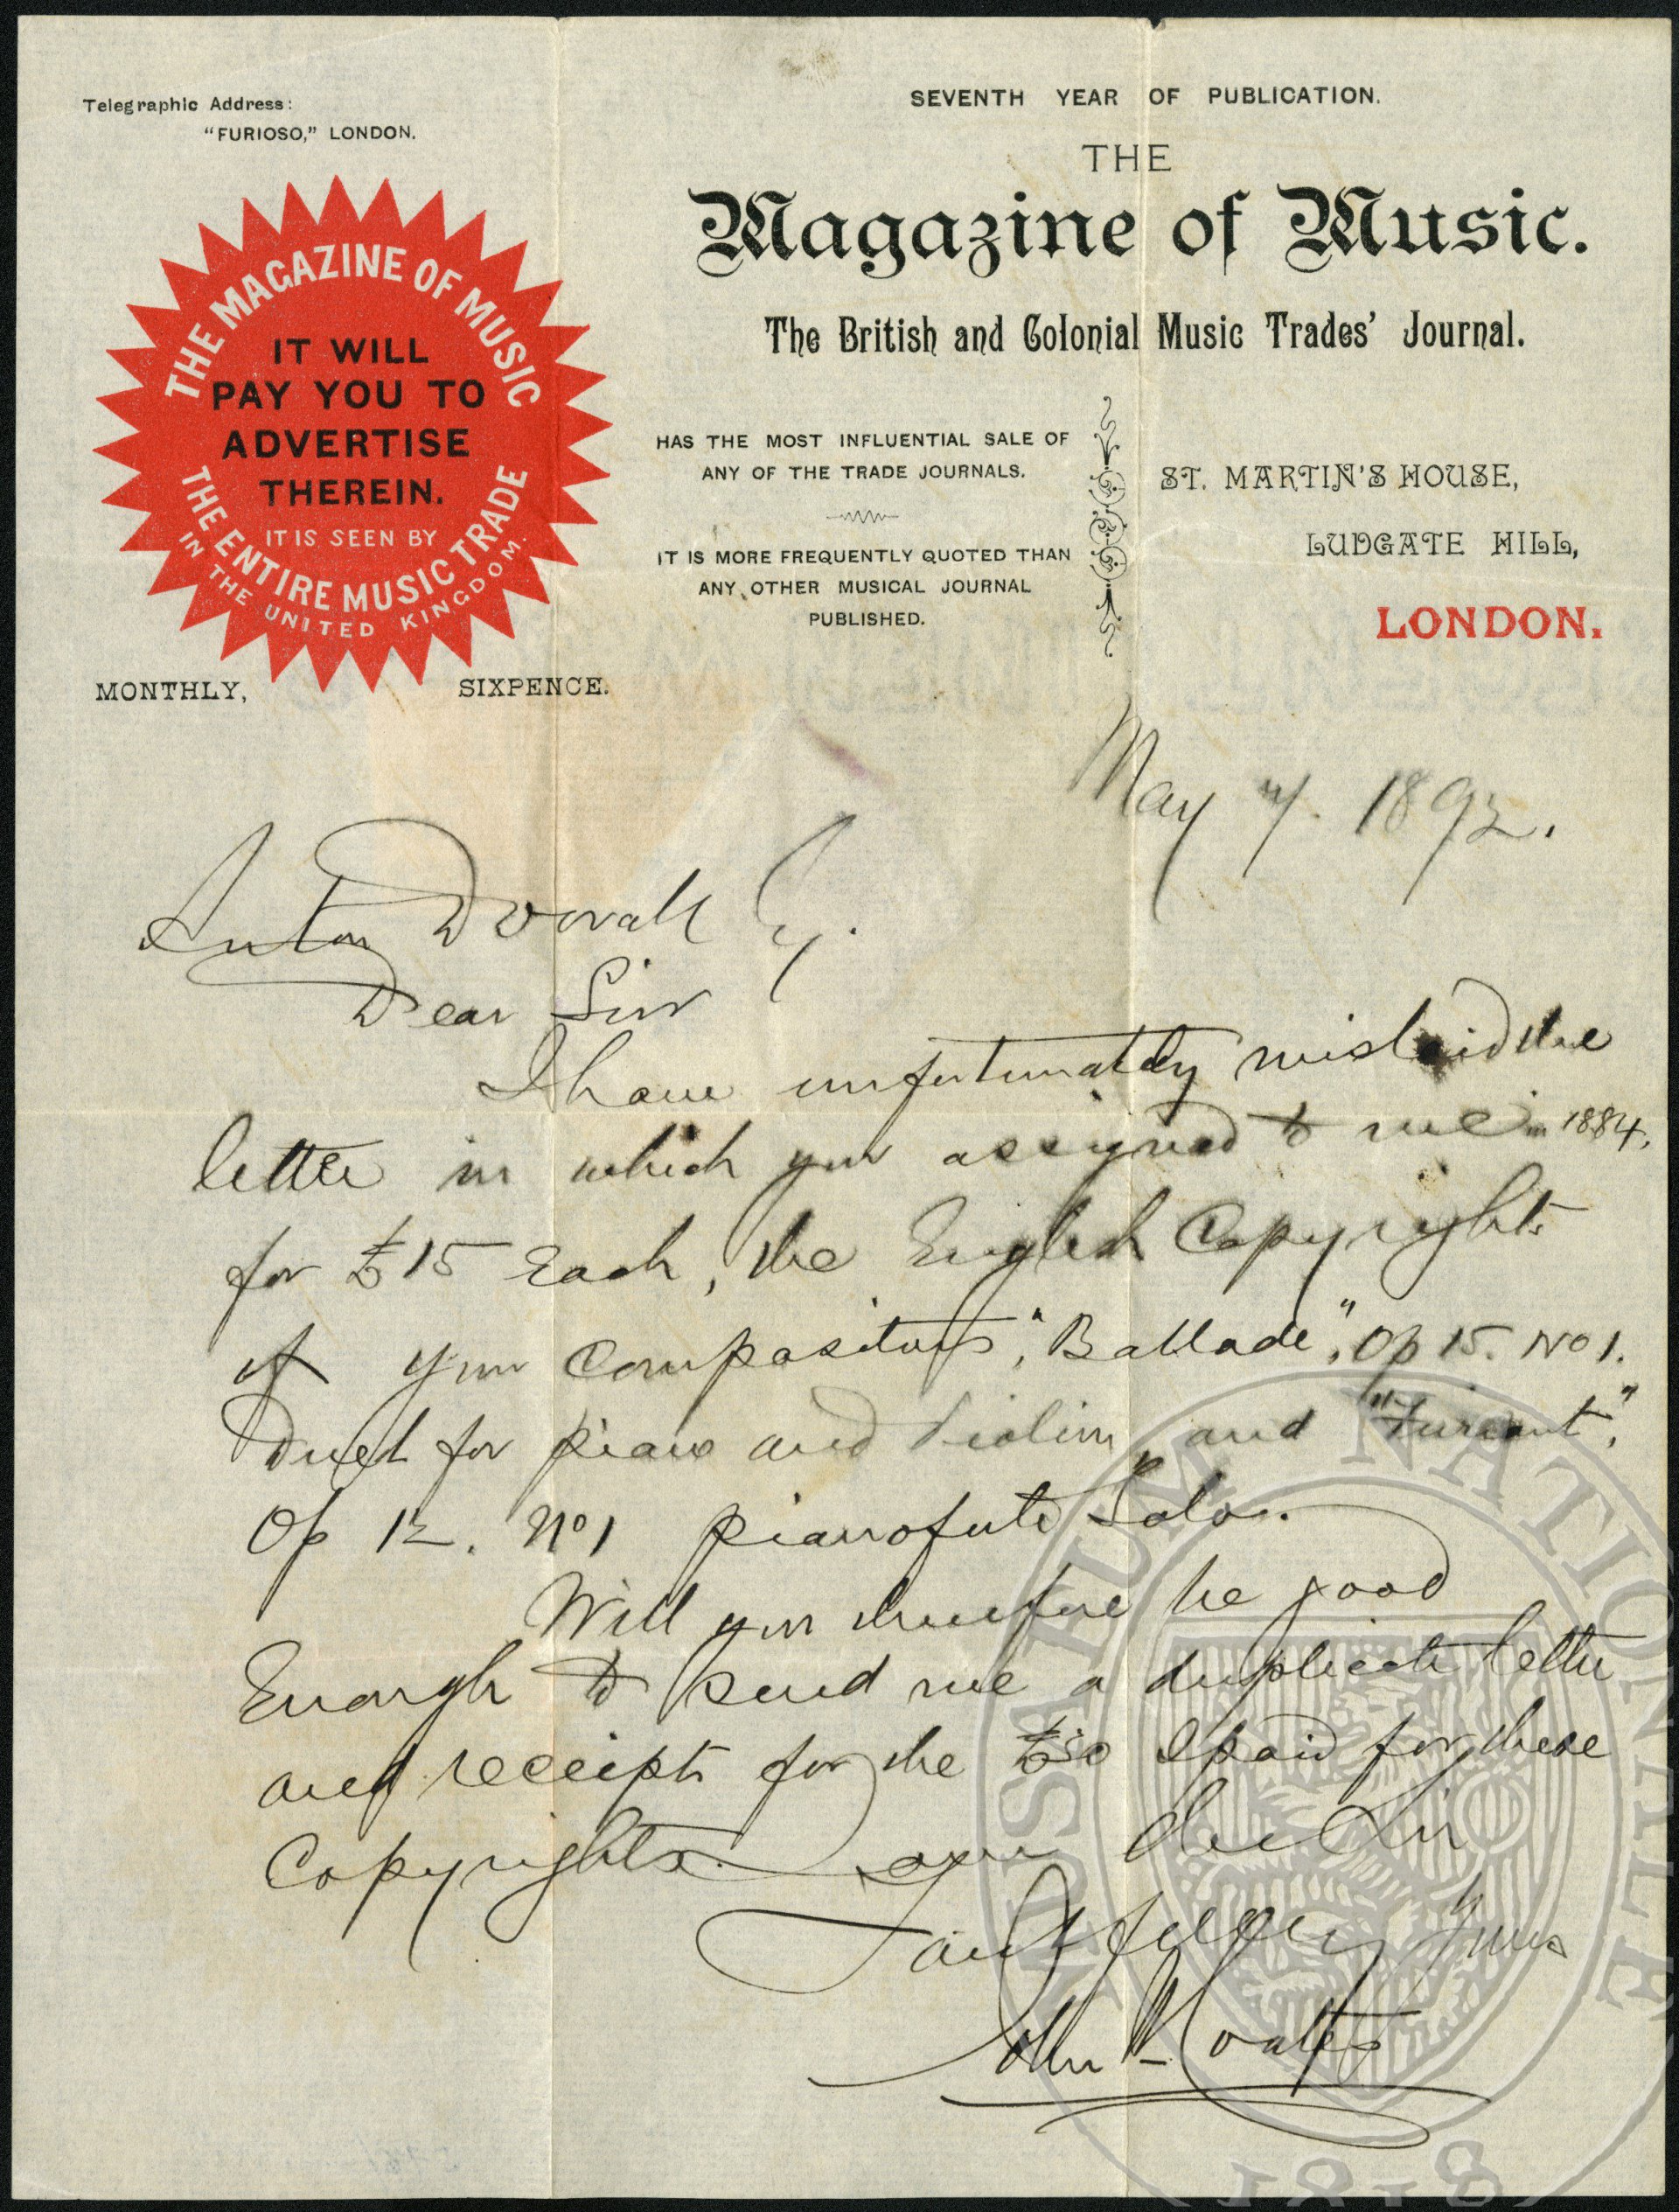 Telegraphic Address:
"FURIOSO," LONDON.
SEVENTH YEAR OF PUBLICATION.
THE
Magazine of Music.
The British and Colonial Music Trades' Journal.
THE MAGAZINE OF MUSIC
IT WILL
PAY YOU TO
ADVERTISE
THEREIN.
IT IS SEEN BY
THE ENTIRE MUSIC TRADE
IN THE UNITED KINGDOM.
MONTHLY, SIXPENCE.
HAS THE MOST INFLUENTIAL SALE OF
ANY OF THE TRADE JOURNALS.
IT IS MORE FREQUENTLY QUOTED THAN
ANY OTHER MUSICAL JOURNAL
PUBLISHED.
ST. MARTIN'S HOUSE,
LUDGATE HILL,
LONDON.
May 7. 1892.
Anton
Dear Sir
I have unfortunately mislaid the
letter in which you assigned to me in 1884,
for £15 Each, the English Copyrights
of your Compositions, "Ballade", Op 15. No 1.
Duet for piano and Violin, and "Furiant",
Op 12. No 1 pianoforte Solo.
Will you therefore be good
Enough to send me a duplicate letter
and receipt for the £30 I paid for these
Copyrights.
Dear Sir
Faithfully Yours
John Coates
MUSAEUM NATIONALE
1818